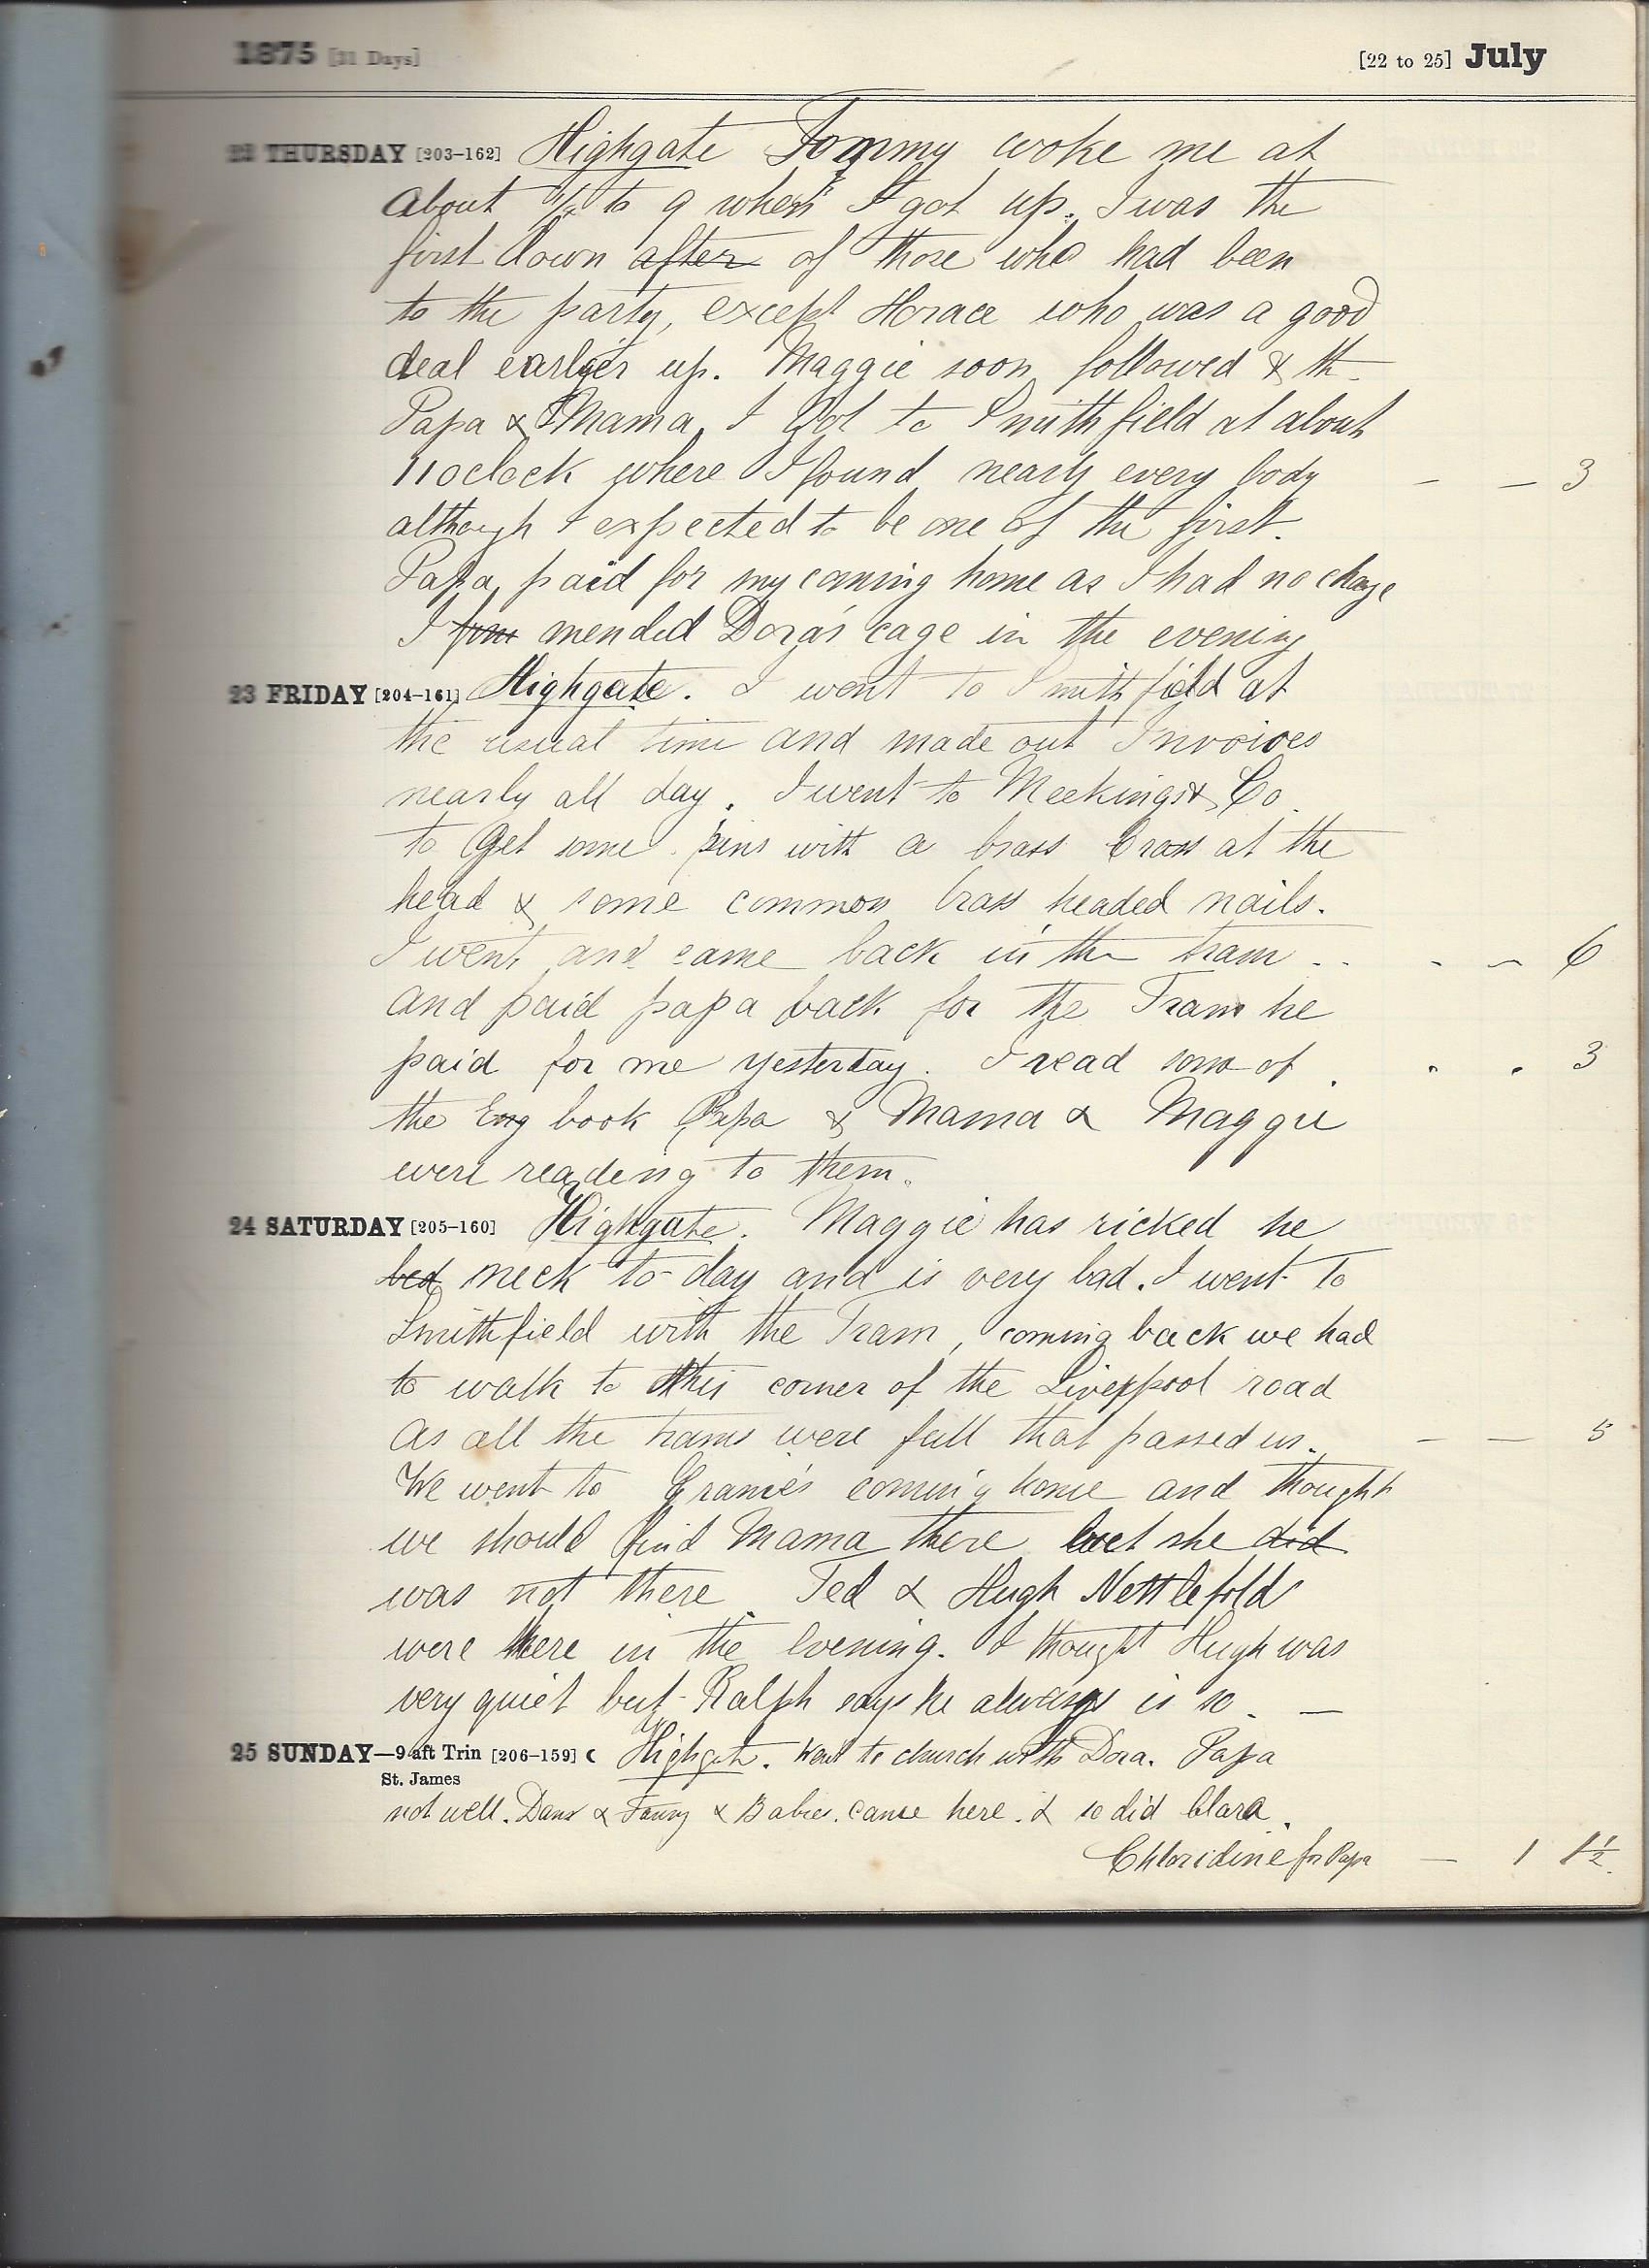 1875 [31 Days] [22 to 25] July
22 THURSDAY [203-162] Highgate Tommy woke me at
about 1/4 to 9 when I got up. I was the
first down after of those who had been
to the party, except Horace who was a good
deal earlier up. Maggie soon followed & th
Papa & Mama, I got to Smithfield at about
11 oclock where I found nearly every body — — 3
although I expected to be one of the first.
Papa, paid for my coming home as I had no change
I mended Dora's cage in the evening
23 FRIDAY [204-161] Highgate. I went to Smithfield at
the usual time and made out Invoices
nearly all day. I went to Meekings & Co.
to get some pins with a brass Cross at the
head & some common brass headed nails.
I went and came back in the tram .. - — 6
and paid papa back for the Tram he
paid for me yesterday. I read some of . . . 3
the Eng book Papa & Mama & Maggie
were reading to them.
24 SATURDAY [205-160] Highgate. Maggie has ricked he
neck to-day and is very bad. I went to
Smithfield with the Tram, coming back we had
to walk to this corner of the Liverpool road
as all the trams were full that passed us. — — 5
We went to Granie's coming home and thought
we should find Mama there but she did
was not there. Ted & Hugh Nettlefold
were here in the evening. I thought Hugh was
very quiet but Ralph says he always is so. —
25 SUNDAY—9 aft Trin [206-159] ☾ Highgate. Went to church with Dora. Papa
St. James
not well. & Fanny & Babies. came here. & so did Clara.
Chloridine for Papa — 1 1½